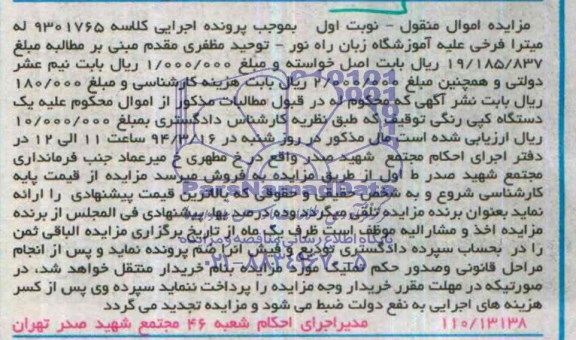 مزایده اموال منقول - نوبت اول    بموجب پرونده اجرایی کلاسه ۹۳۰۱۷۶۵ له
میترا فرخی علیه آموزشگاه زبان راه نور - توحید مظفری مقدم مبنی بر مطالبه مبلغ
۱۹/۱۸۵/۸۳۷ ریال بابت اصل خواسته و مبلغ ۱/۰۰۰/۰۰۰ ریال بابت نیم عشر
دولتی و همچنین مبلغ ۲/۰۰۰/۰۰۰ ریال بابت هزینه کارشناسی و مبلغ ۱۸۰/۰۰۰
ریال بابت نشر آگهی که محکوم له در قبول مطالبات مذکور از اموال محکوم علیه یک
دستگاه کپی رنگی توقیف که طبق نظریه کارشناس دادگستری بمبلغ ۱۰/۰۰۰/۰۰۰
ریال ارزیابی شده است مال مذکور در روز شنبه در ۹۴/۳/۱۶ ساعت ۱۱ الی ۱۲ در
دفتر اجرای احکام مجتمع شهید صدر واقع در خ مطهری خ میرعماد جنب فرمانداری
مجتمع شهید صدر ط اول از طریق مزایده به فروش میرسد مزایده از قیمت پایه
کارشناسی شروع و به شخص حقیقی و حقوقی که بالاترین قیمت پیشنهادی را ارائه
نماید بعنوان برنده مزایده تلقی میگردد و ده درصد بهاء پیشنهادی فی المجلس از برنده
مزایده اخذ و مشارالیه موظف است ظرف یک ماه از تاریخ برگزاری مزایده الباقی ثمن
را در بحساب سپرده دادگستری تودیع و فیش آنرا ضم پرونده نماید و پس از انجام
مراحل قانونی وصدور حکم تملیک مورد مزایده بنام خریدار منتقل خواهد شد، در
صورتیکه در مهلت مقرر خریدار وجه مزایده را پرداخت ننماید سپرده وی پس از کسر
هزینه های اجرایی به نفع دولت ضبط می شود و مزایده تجدید می گردد
۱۱۰/۱۳۱۳۸    مدیراجرای احکام شعبه ۴۶ مجتمع شهید صدر تهران
ParsNamadData
پایگاه اطلاع رسانی مناقصه و مزایده